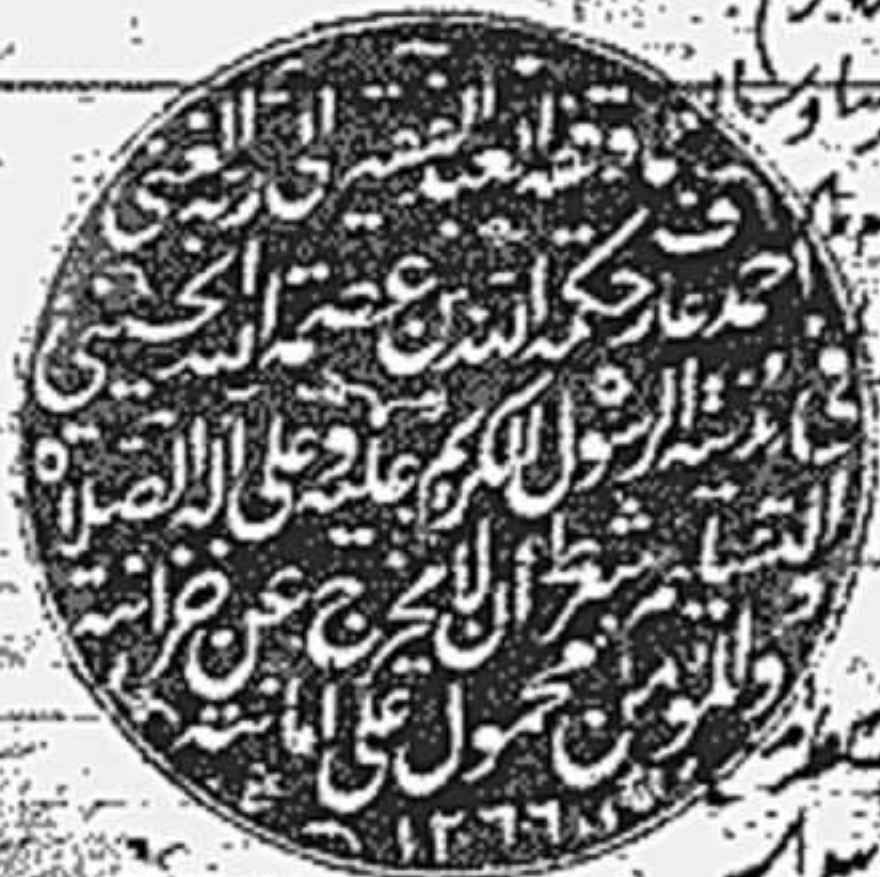 مما وقفه العبد الفقير الى ربه الغني
احمد عارف حكمة الله بن عصمة الله الحسيني
في مدينة الرسول الكريم عليه وعلى آله الصلاة
والتسليم بشرط أن لا يخرج عن خزانته
والمؤمن محمول على امانته
١٢٦٦